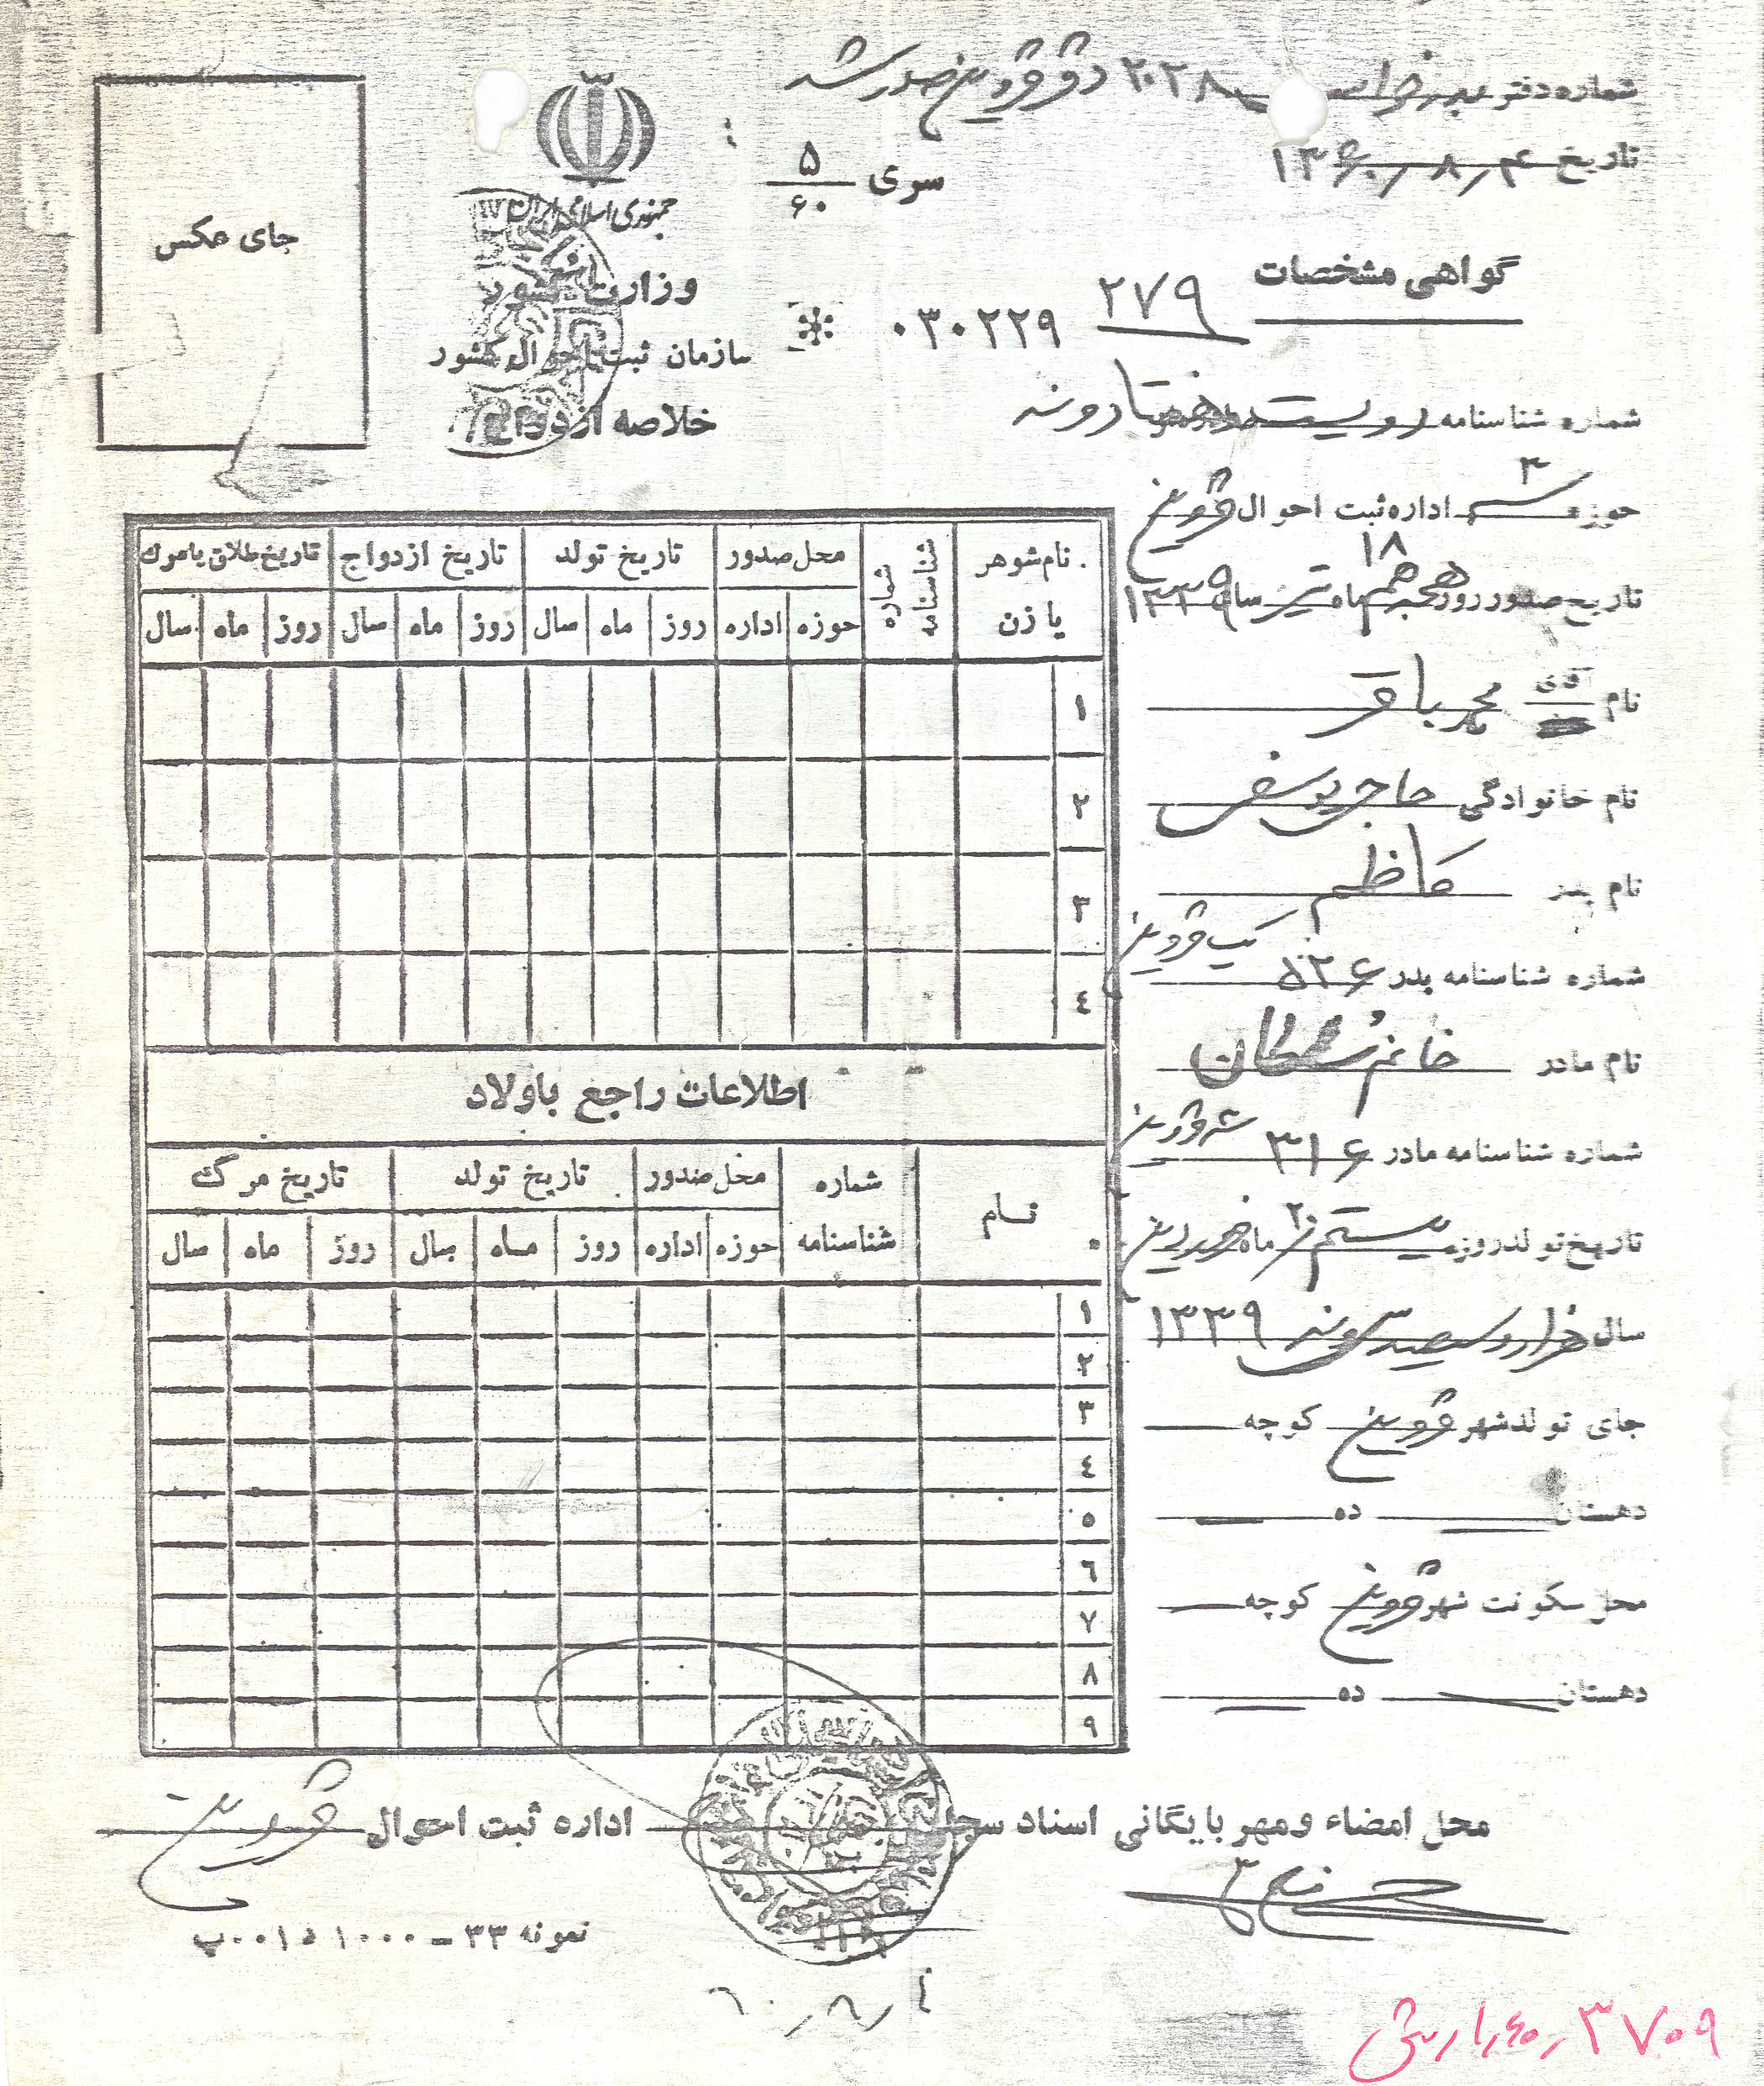 شماره دفتر ۲۰۲۸ قزوین صادر شد
تاریخ ۱۳۶۰٫۸٫۴
سری ۵/۶۰
گواهی مشخصات ۲۷۹
۰۳۰۲۲۹
شماره شناسنامه دویست و هفتاد و نه
حوزه ۳ اداره ثبت احوال قزوین
تاریخ صدور روز هجدهم ۱۸ ماه تیر سال ۱۳۳۹
نام آقای محمد باقر
نام خانوادگی حاجی یوسفی
نام پدر کاظم
شماره شناسنامه پدر ۵۲۶ قزوین
نام مادر خانم سلطان
شماره شناسنامه مادر ۳۱۶ قزوین
تاریخ تولد روز بیستم ۲۰ ماه فروردین
سال هزار و سیصد و سی و نه ۱۳۳۹
جای تولد شهر قزوین کوچه
دهستان ده
محل سکونت شهر قزوین کوچه
دهستان ده
جمهوری اسلامی ایران
وزارت کشور
سازمان ثبت احوال کشور
خلاصه ازدواج
جای عکس
نام شوهر یا زن
شماره شناسنامه
محل صدور
تاریخ تولد
تاریخ ازدواج
تاریخ طلاق یا مرگ
حوزه اداره روز ماه سال روز ماه سال روز ماه سال
۱
۲
۳
٤
اطلاعات راجع باولاد
نام
شماره شناسنامه
محل صدور
تاریخ تولد
تاریخ مرگ
حوزه اداره روز ماه سال روز ماه سال
۱
۲
۳
٤
۵
٦
۷
۸
۹
محل امضاء و مهر بایگانی اسناد سجلی اداره ثبت احوال قزوین
نمونه ۳۳ - ۱۰۰۰
٦۰٫۸٫٤
۳۷۰۹